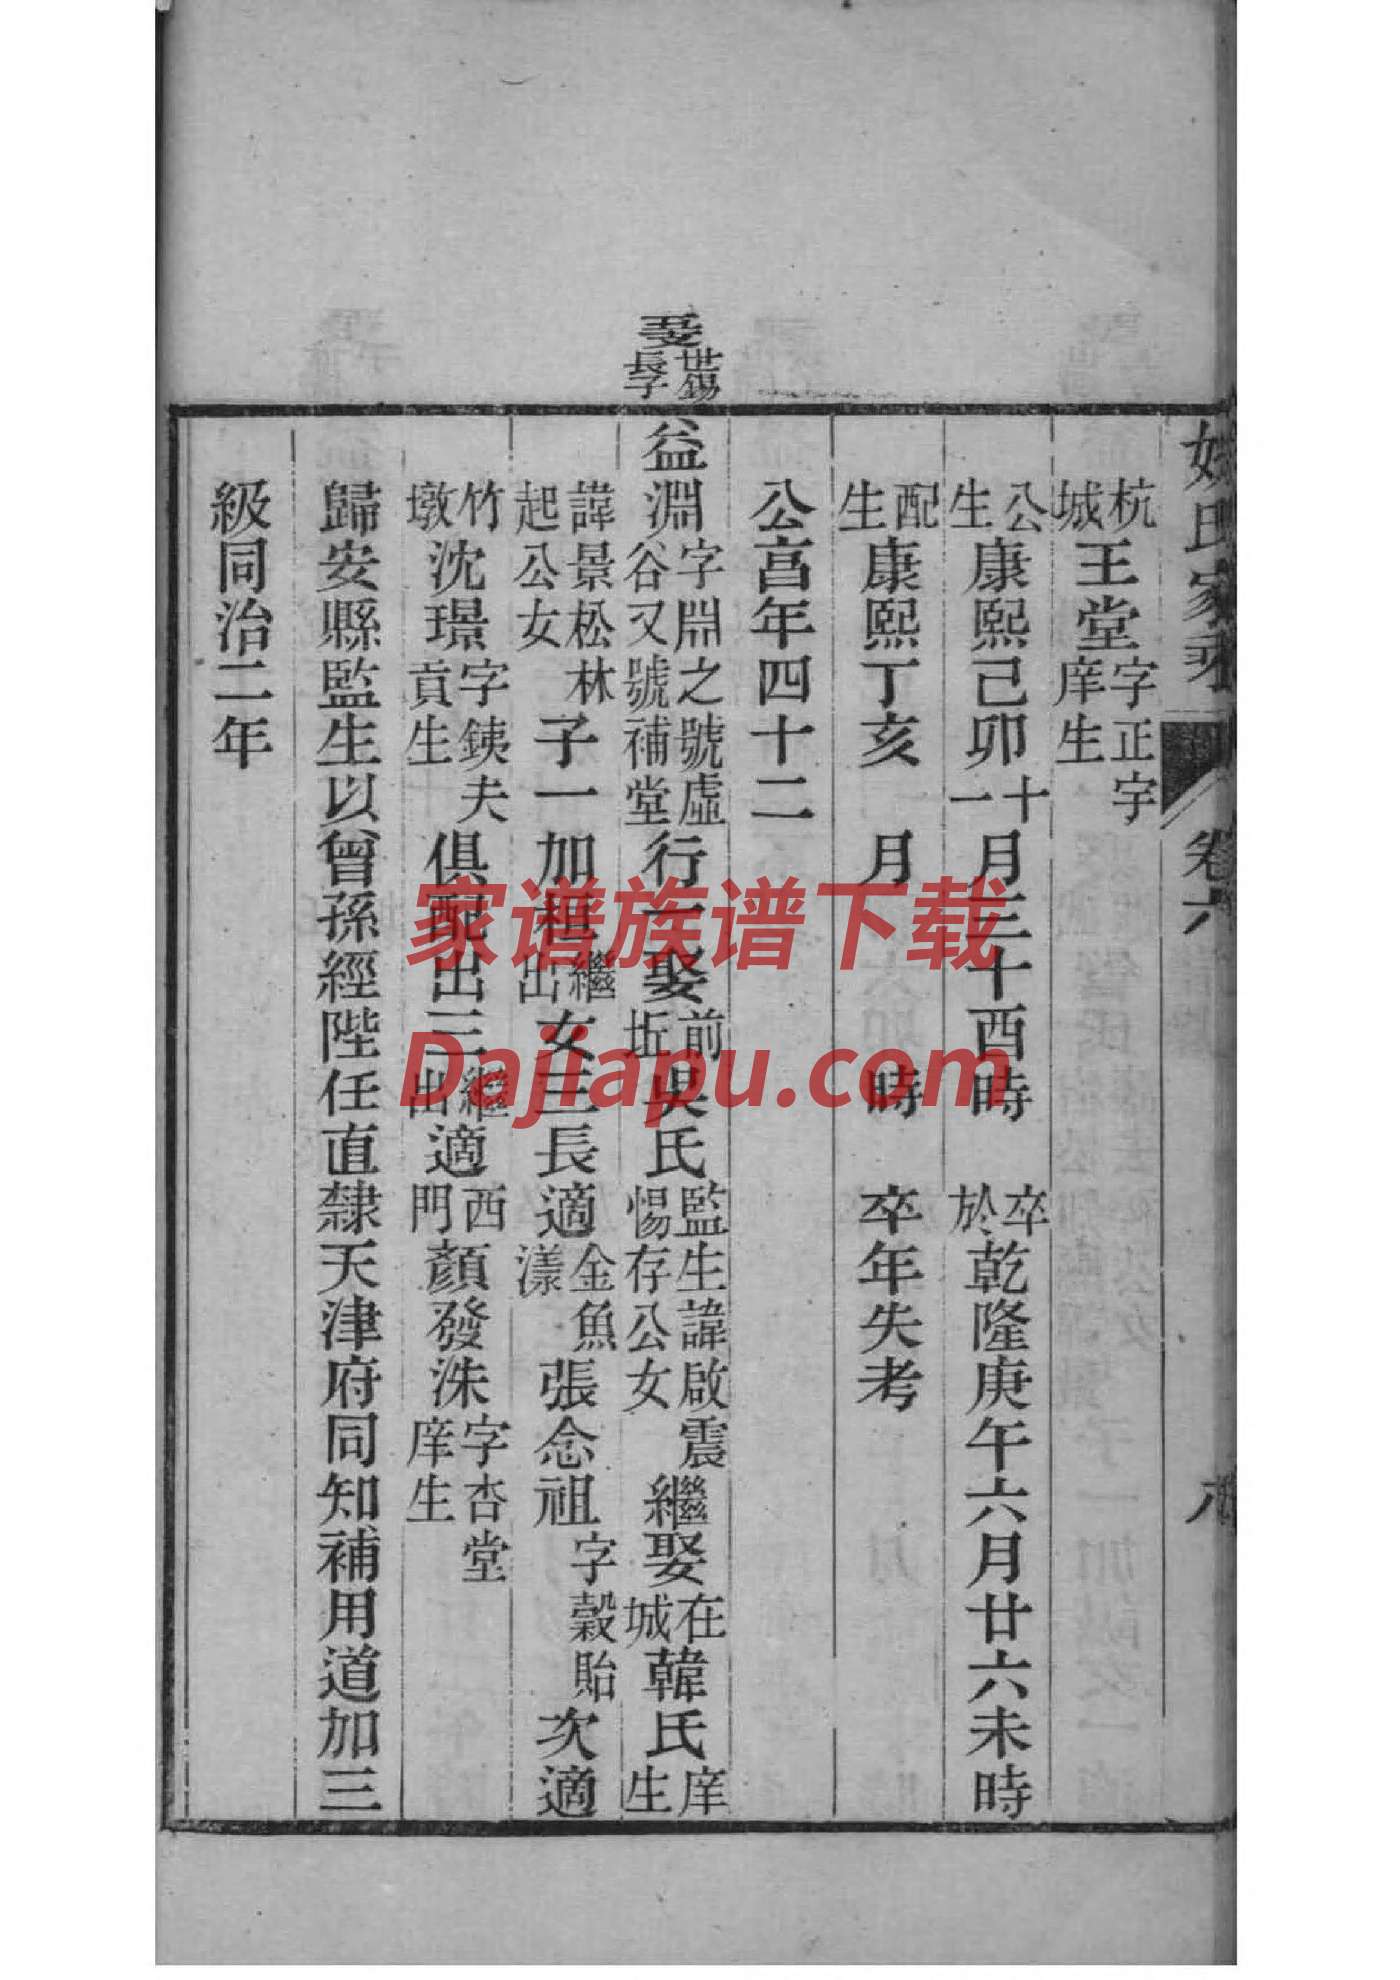 姚氏家乘 卷六 八
杭城王堂字正宇庠生
公生康熙己卯十一月三十酉時 卒於乾隆庚午六月廿六未時
配生康熙丁亥 月 時 卒年失考
公享年四十二
世錫長子
益淵字淵之號虛谷又號補堂行一娶前坵吳氏監生諱啟震惕存公女繼娶在城韓氏庠生
諱景松林起公女子一加桓繼出女三長適金魚漾張念祖字穀貽次適
竹墩沈璟字銕夫貢生俱配出三繼出適西門顏發洙字杏堂庠生
歸安縣監生以曾孫經陛任直隸天津府同知補用道加三
級同治二年
家谱族谱下载
Dajiapu.com